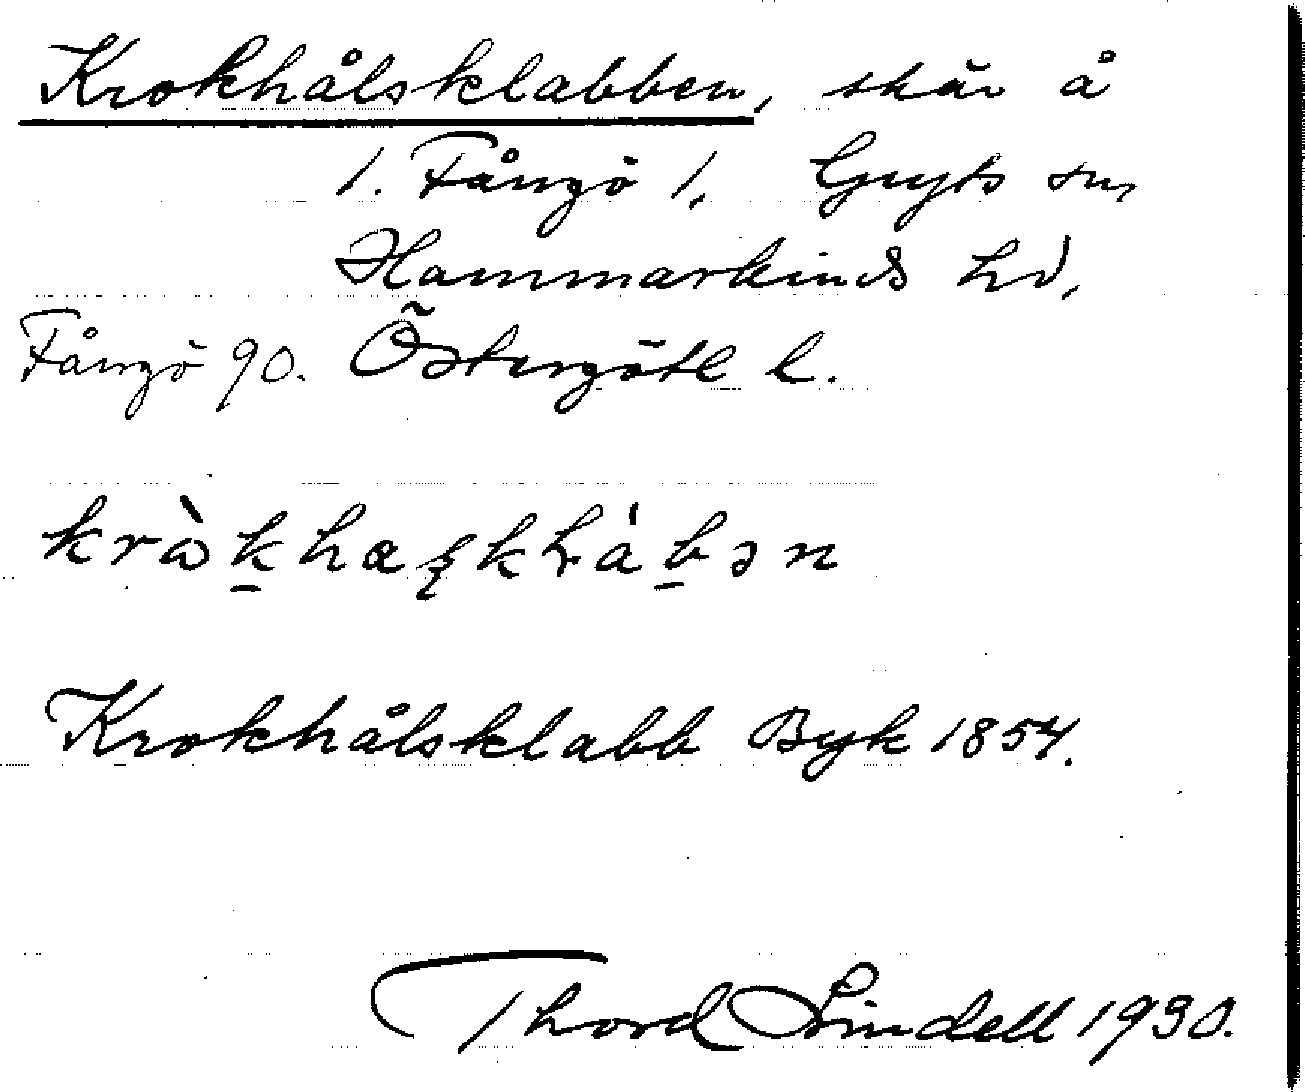 Krokhålsklabben, skär å
1. Fångö 1, Gryts sn,
Hammarkinds hd,
Fångö 90. Östergötl l.
kràk̲hæşkḷáb̲ən
Krokhålsklabb Byk 1854.
Thord Lindell 1930.